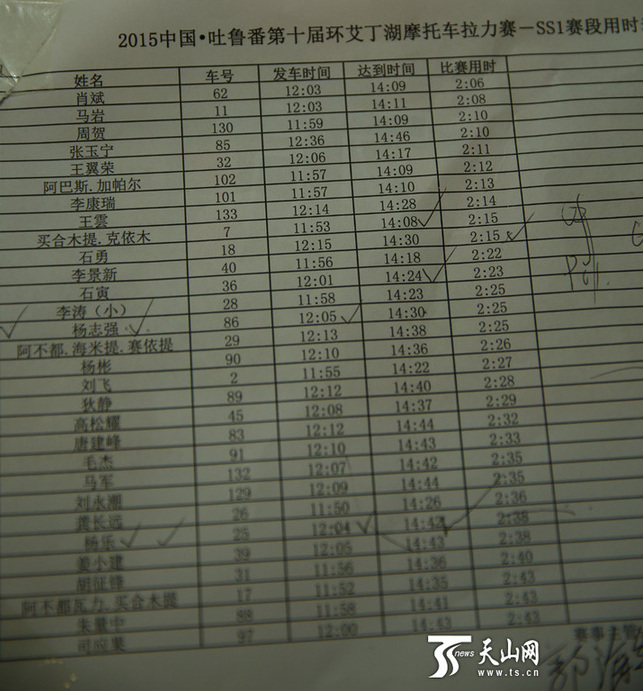 2015中国·吐鲁番第十届环艾丁湖摩托车拉力赛－SS1赛段用时
姓名 车号 发车时间 达到时间 比赛用时
肖斌 62 12:03 14:09 2:06
马岩 11 12:03 14:11 2:08
周贺 130 11:59 14:09 2:10
张玉宁 85 12:36 14:46 2:10
王翼荣 32 12:06 14:17 2:11
阿巴斯.加帕尔 102 11:57 14:09 2:12
李康瑞 101 11:57 14:10 2:13
王雲 133 12:14 14:28 2:14
买合木提.克依木 7 11:53 14:08 2:15
石勇 18 12:15 14:30 2:15
李景新 40 11:56 14:18 2:22
石寅 36 12:01 14:24 2:23
李涛（小） 28 11:58 14:23 2:25
杨志强 86 12:05 14:30 2:25
阿不都.海米提.赛依提 29 12:13 14:38 2:25
杨彬 90 12:10 14:36 2:26
刘飞 2 11:55 14:22 2:27
狄静 89 12:12 14:40 2:28
高松耀 45 12:08 14:37 2:29
唐建峰 83 12:12 14:44 2:32
毛杰 91 12:10 14:43 2:33
马军 132 12:07 14:42 2:35
刘永潮 129 12:09 14:44 2:35
龚长远 26 11:50 14:26 2:36
杨乐 25 12:04 14:42 2:38
姜小建 39 12:05 14:43 2:38
胡征锋 31 11:56 14:36 2:40
阿不都瓦力.买合木提 17 11:52 14:35 2:43
88 11:58 14:41 2:43
97 12:00 14:43 2:43
赛事主管
TS news 天山网
www.ts.cn